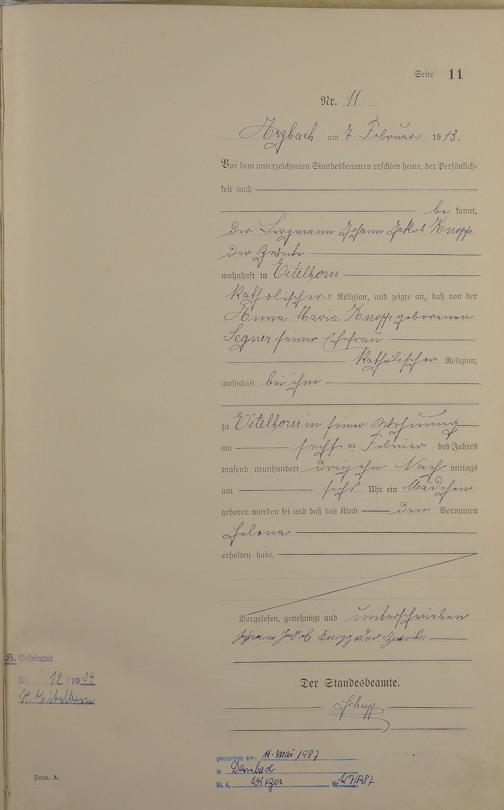 Seite 11
Nr. 11
Arzbach am 7. Februar 1913.
Vor dem unterzeichneten Standesbeamten erschien heute, der Persönlich-
keit nach
be kannt,
der Bergmann Johann Jakob Knopp
der Zweite
wohnhaft in Eitelborn
katholischer Religion, und zeigte an, daß von der
Anna Maria Knopp geborenen
seiner Ehefrau
katholischer Religion,
wohnhaft bei ihm
zu Eitelborn in seiner Wohnung
am sechsten Februar des Jahres
tausend neunhundert dreizehn Nach mittags
um sechs Uhr ein Mädchen
geboren worden sei und daß das Kind den Vornamen
Helena
erhalten habe.
Vorgelesen, genehmigt und unterschrieben
Johann Jakob Knopp der Zweite
Der Standesbeamte.
H. Geheiratet
Nr. 12/1934
Eitelborn
gestorben am: 11. Mai 1987
in
St. A.
Form. A.